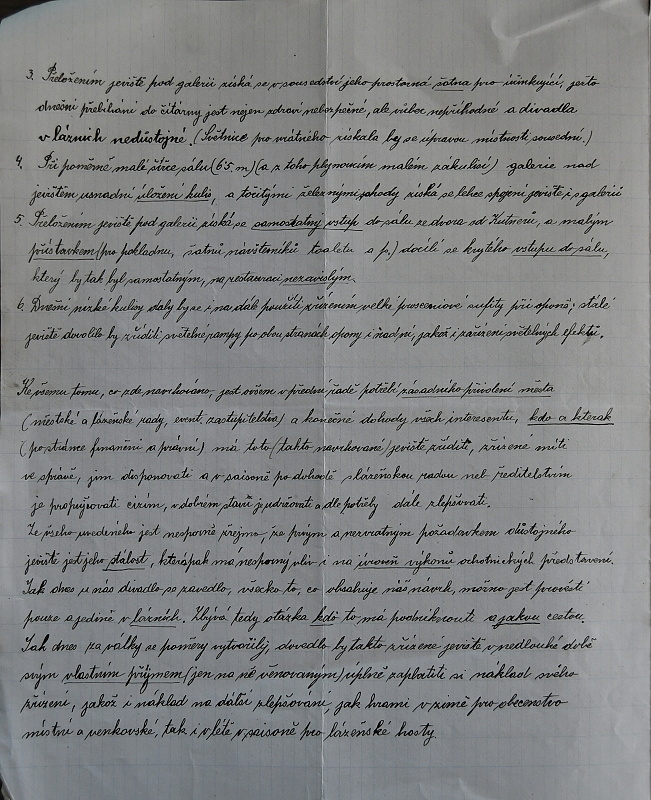 3. Přeložením jeviště pod galerii získá se v sousedství jeho prostorná šatna pro účinkující, ježto
dnešní přebíhání do čítárny jest nejen zdraví nebezpečné, ale vůbec nepříhodné a divadla
v lázních nedůstojné. (Světnice pro vrátného získala by se úpravou místnosti sousední.)
4. Při poměrně malé šířce sálu (6·5 m) (a z toho plynoucím malém zákulisí) galerie nad
jevištěm usnadní uložení kulis, a točitými železnými schody získá se lehce spojení jeviště i s galerií
5. Přeložením jeviště pod galerii získá se samostatný vstup do sálu ze dvora od Kutnerů, a malým
přístavkem (pro pokladnu, šatnu návštěvníků toaletu a p.) docílí se krytého vstupu do sálu,
který by tak byl samostatným, na restauraci nezávislým.
6. Dnešní nízké kulisy daly by se i na dále použíti zřízením velké prosceniové sufity při oponě; stálé
jeviště dovolilo by zříditi světelné rampy po obou stranách opony i nad ní, jakož i zařízení světelných efektů.
Ke všemu tomu, co zde navrhováno, jest ovšem v přední řadě potřebí zásadního přivolení města
(městské a lázeňské rady, event. zastupitelstva) a konečné dohody všech interesentů, kdo a kterak
(po stránce finanční a právní) má toto (takto navrhované) jeviště zříditi, zřízené míti
ve správě, jím disponovati a v saisoně po dohodě s lázeňskou radou neb ředitelstvím
je propůjčovati cizím, v dobrém stavu je udržovati a dle potřeby dále zlepšovati.
Ze všeho uvedeného jest nesporně zřejmo, že prvým a nezvratným požadavkem důstojného
jeviště jest jeho stálost, kterápak má nesporný vliv i na úroveň výkonů ochotnických představení.
Jak dnes u nás divadlo se zavedlo, všecko to, co obsahuje náš návrh, možno jest provésti
pouze a jedině v lázních. Zbývá tedy otázka kdo to má podniknouti a jakou cestou.
Jak dnes za války se poměry vytvořily, dovedlo by takto zřízené jeviště v nedlouhé době
svým vlastním příjmem (jen na ně věnovaným) úplně zaplatiti si náklad svého
zřízení, jakož i náklad na další zlepšování jak hrami v zimě pro obecenstvo
místní a venkovské, tak i v létě v saisoně pro lázeňské hosty.